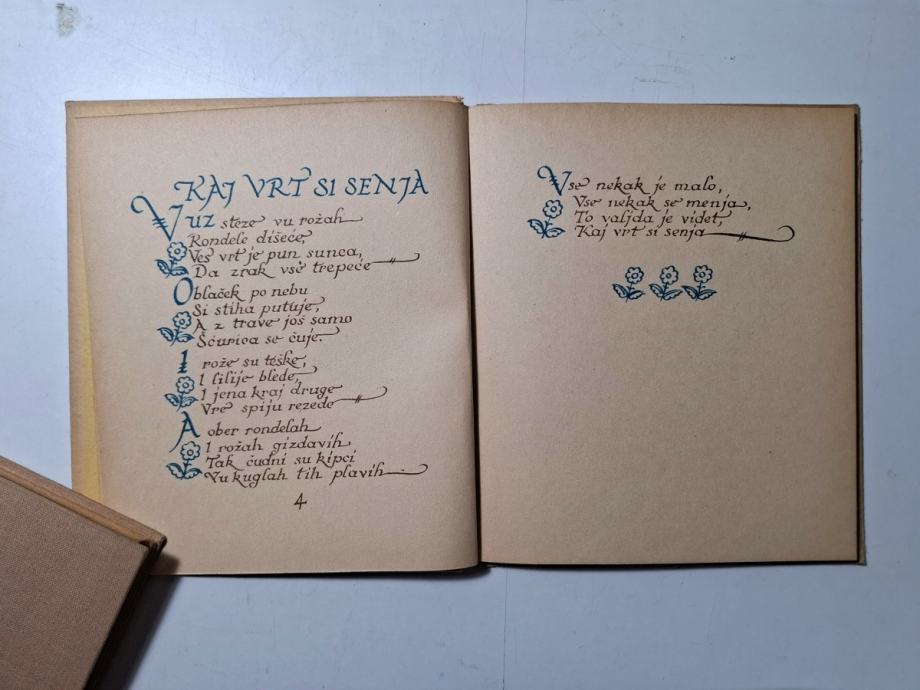 KAJ VRT SI SENJA
Vuz steze vu rožah
Rondele dišeće,
Ves vrt je pun sunca,
Da zrak vse trepeće
Oblaček po nebu
Si stiha putuje,
A z trave još samo
Ščurica se čuje.
I rože su teške,
I lilije blede,
I jena kraj druge
Vre spiju rezede
A ober rondelah
I rožah gizdavih
Tak čudni su kipci
Vu kuglah tih plavih
4
Vse nekak je malo,
Vse nekak se menja,
To valjda je videt,
Kaj vrt si senja